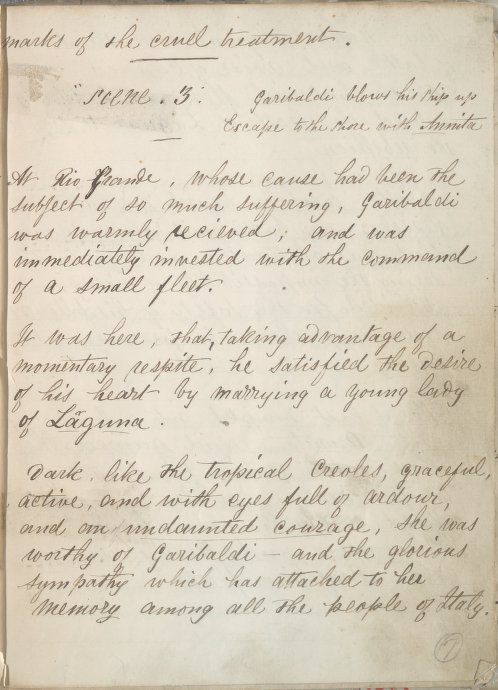 marks of the cruel treatment.
"Scene. 3. Garibaldi blows his ship up
Escape to the shore with Annita
At Rio Grande, whose cause had been the
subject of so much suffering, Garibaldi
was warmly recieved; and was
immediately invested with the command
of a small fleet.
It was here, that, taking advantage of a
momentary respite, he satisfied the desire
of his heart by marrying a young lady
of Läguna.
Dark, like the tropical Creoles, graceful,
active, and with eyes full of ardour,
and an undaunted courage, she was
worthy of Garibaldi – and the glorious
sympathy which has attached to her
memory among all the people of Italy.
7